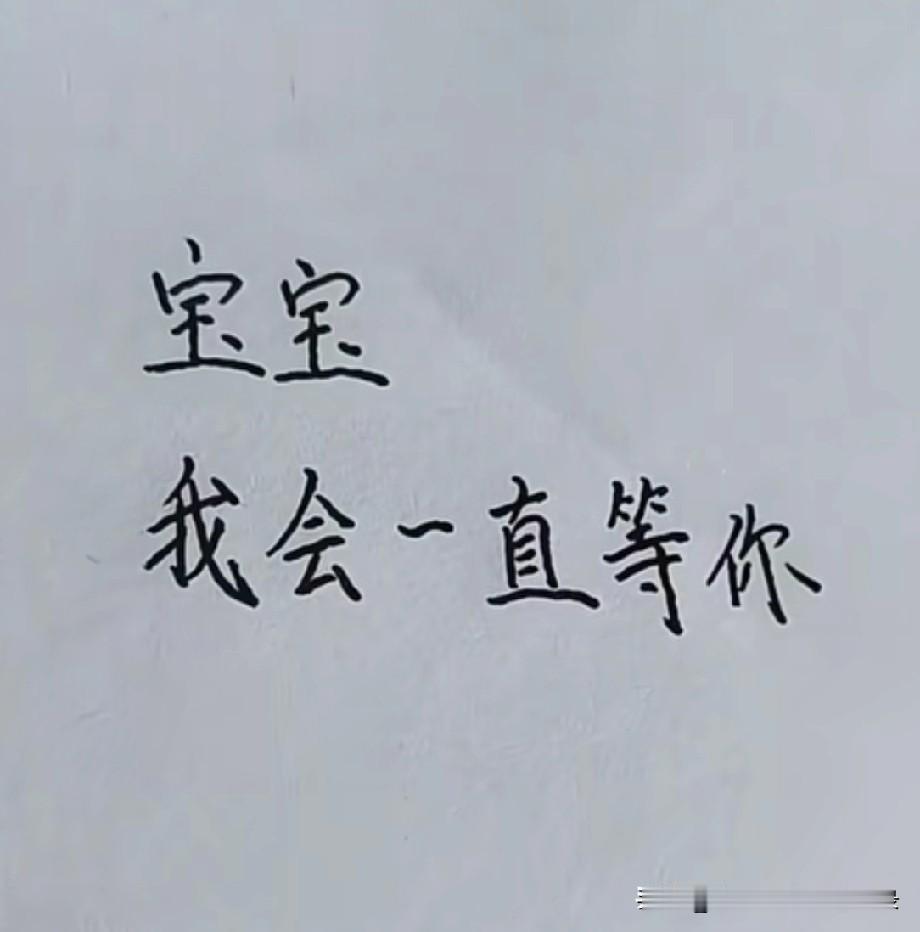 宝宝
我会一直等你